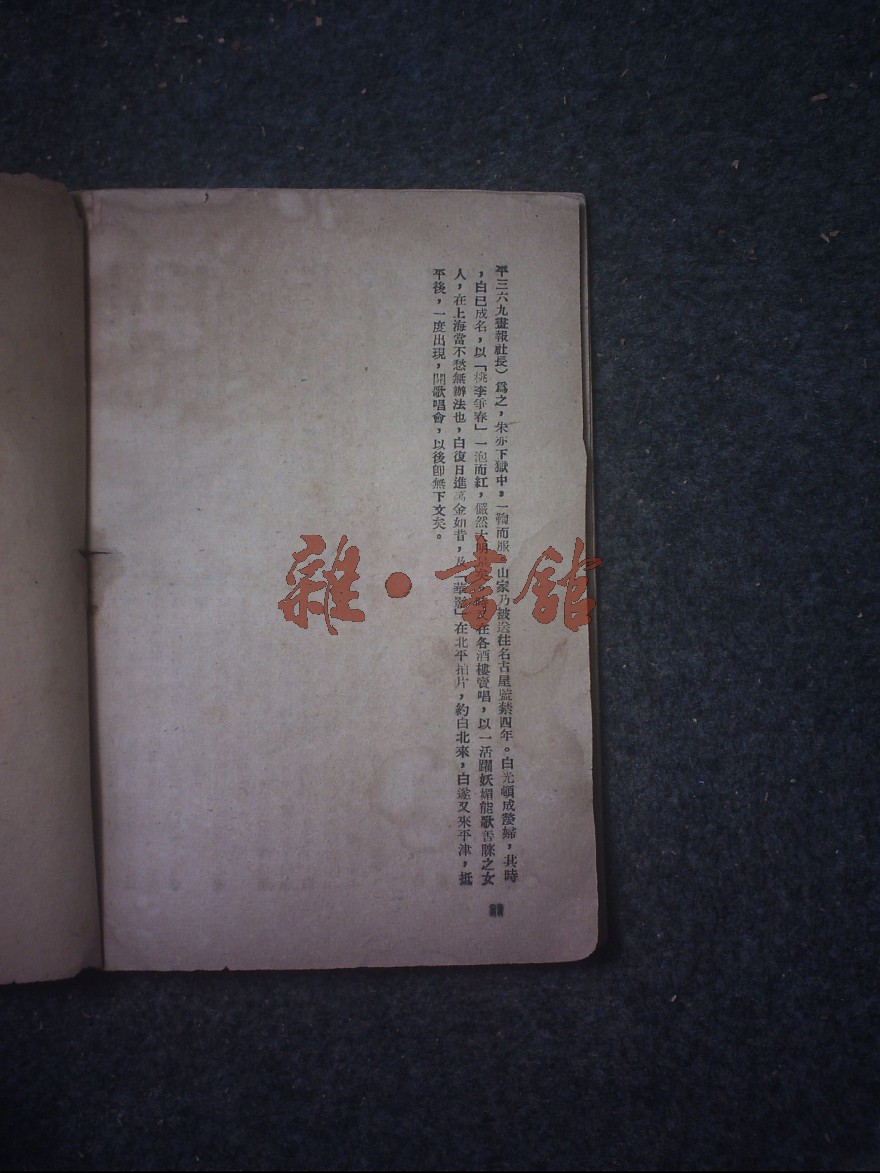 平三六九畫報社長）爲之，朱亦下獄中。一鞫而服，山家乃被送往名古屋監禁四年。白光頓成嫠婦，其時
，白已成名，以「桃李爭春」一泡而紅，儼然大明星矣，時又在各酒樓賣唱，以一活躍妖媚能歌善睐之女
人，在上海當不愁無辦法也，白復日進萬金如昔，及「華影」在北平拍片，約白北來，白遂又來平津，抵
平後，一度出現，開歌唱會，以後卽無下文矣。
雜·書館